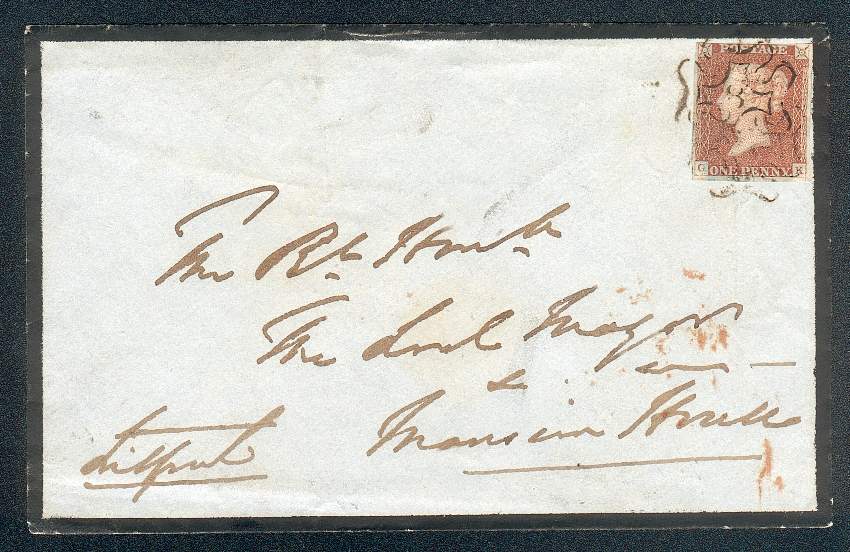 POSTAGE
8
G K
ONE PENNY
The Rt. Honble
The Lord Mayor
&c &c
Mansion House